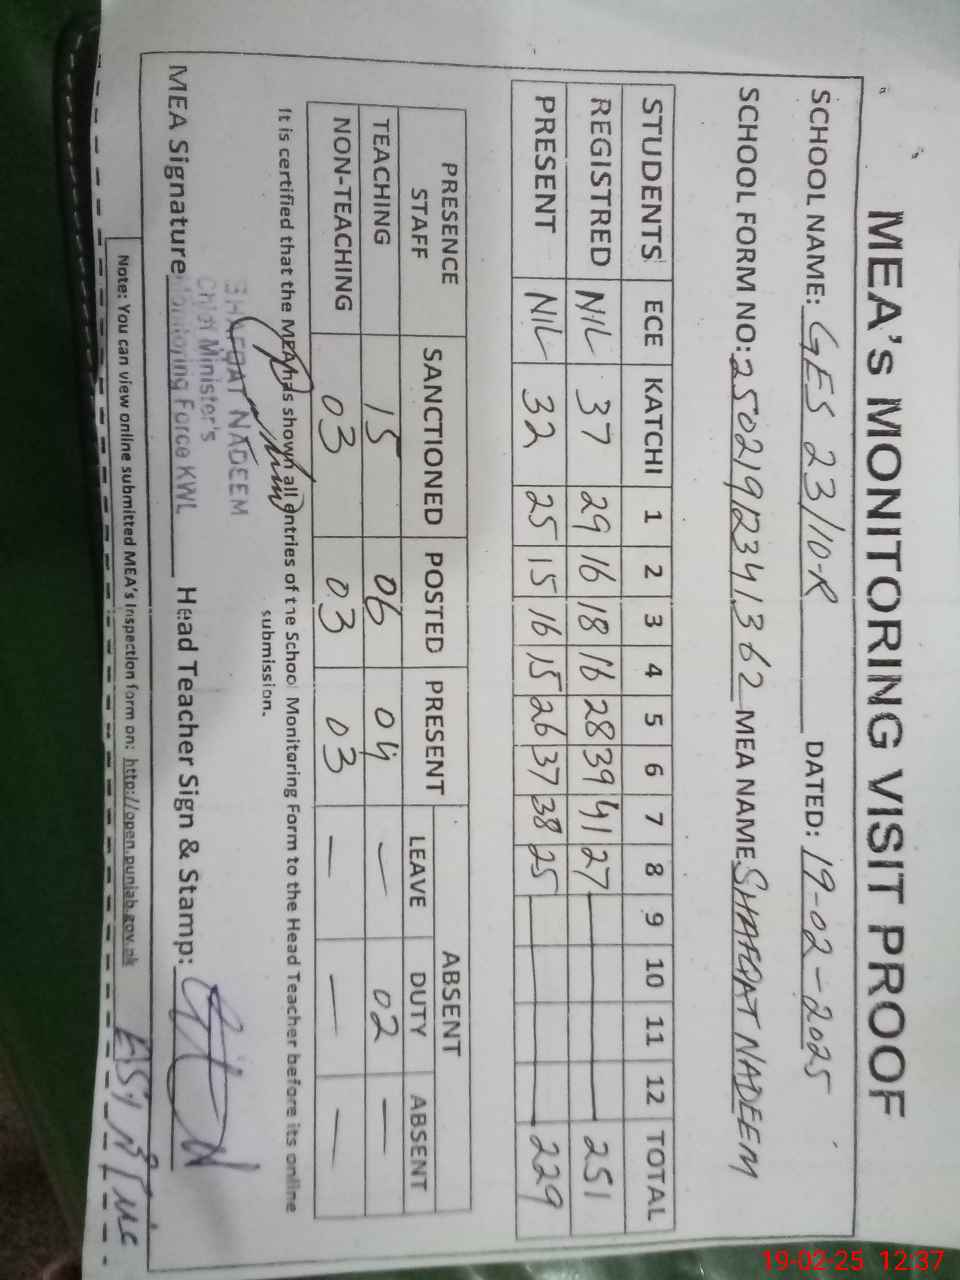 MEA's MONITORING VISIT PROOF
SCHOOL NAME: GES 23/10-R DATED: 19-02-2025
SCHOOL FORM NO: 25021912341362 MEA NAME SHAFQAT NADEEM
STUDENTS ECE KATCHI 1 2 3 4 5 6 7 8 9 10 11 12 TOTAL
REGISTRED NIL 37 29 16 18 16 28 39 41 27 251
PRESENT NIL 32 25 15 16 15 26 37 38 25 229
PRESENCE STAFF SANCTIONED POSTED PRESENT ABSENT
LEAVE DUTY ABSENT
TEACHING 15 06 04 — 02 —
NON-TEACHING 03 03 03 — — —
It is certified that the MEA has shown all entries of the School Monitoring Form to the Head Teacher before its online
submission.
SHAFQAT NADEEM
Chief Minister's
Monitoring Force KWL
MEA Signature Head Teacher Sign & Stamp:
Note: You can view online submitted MEA's Inspection form on: http://open.punjab.gov.pk
19-02-25 12:37